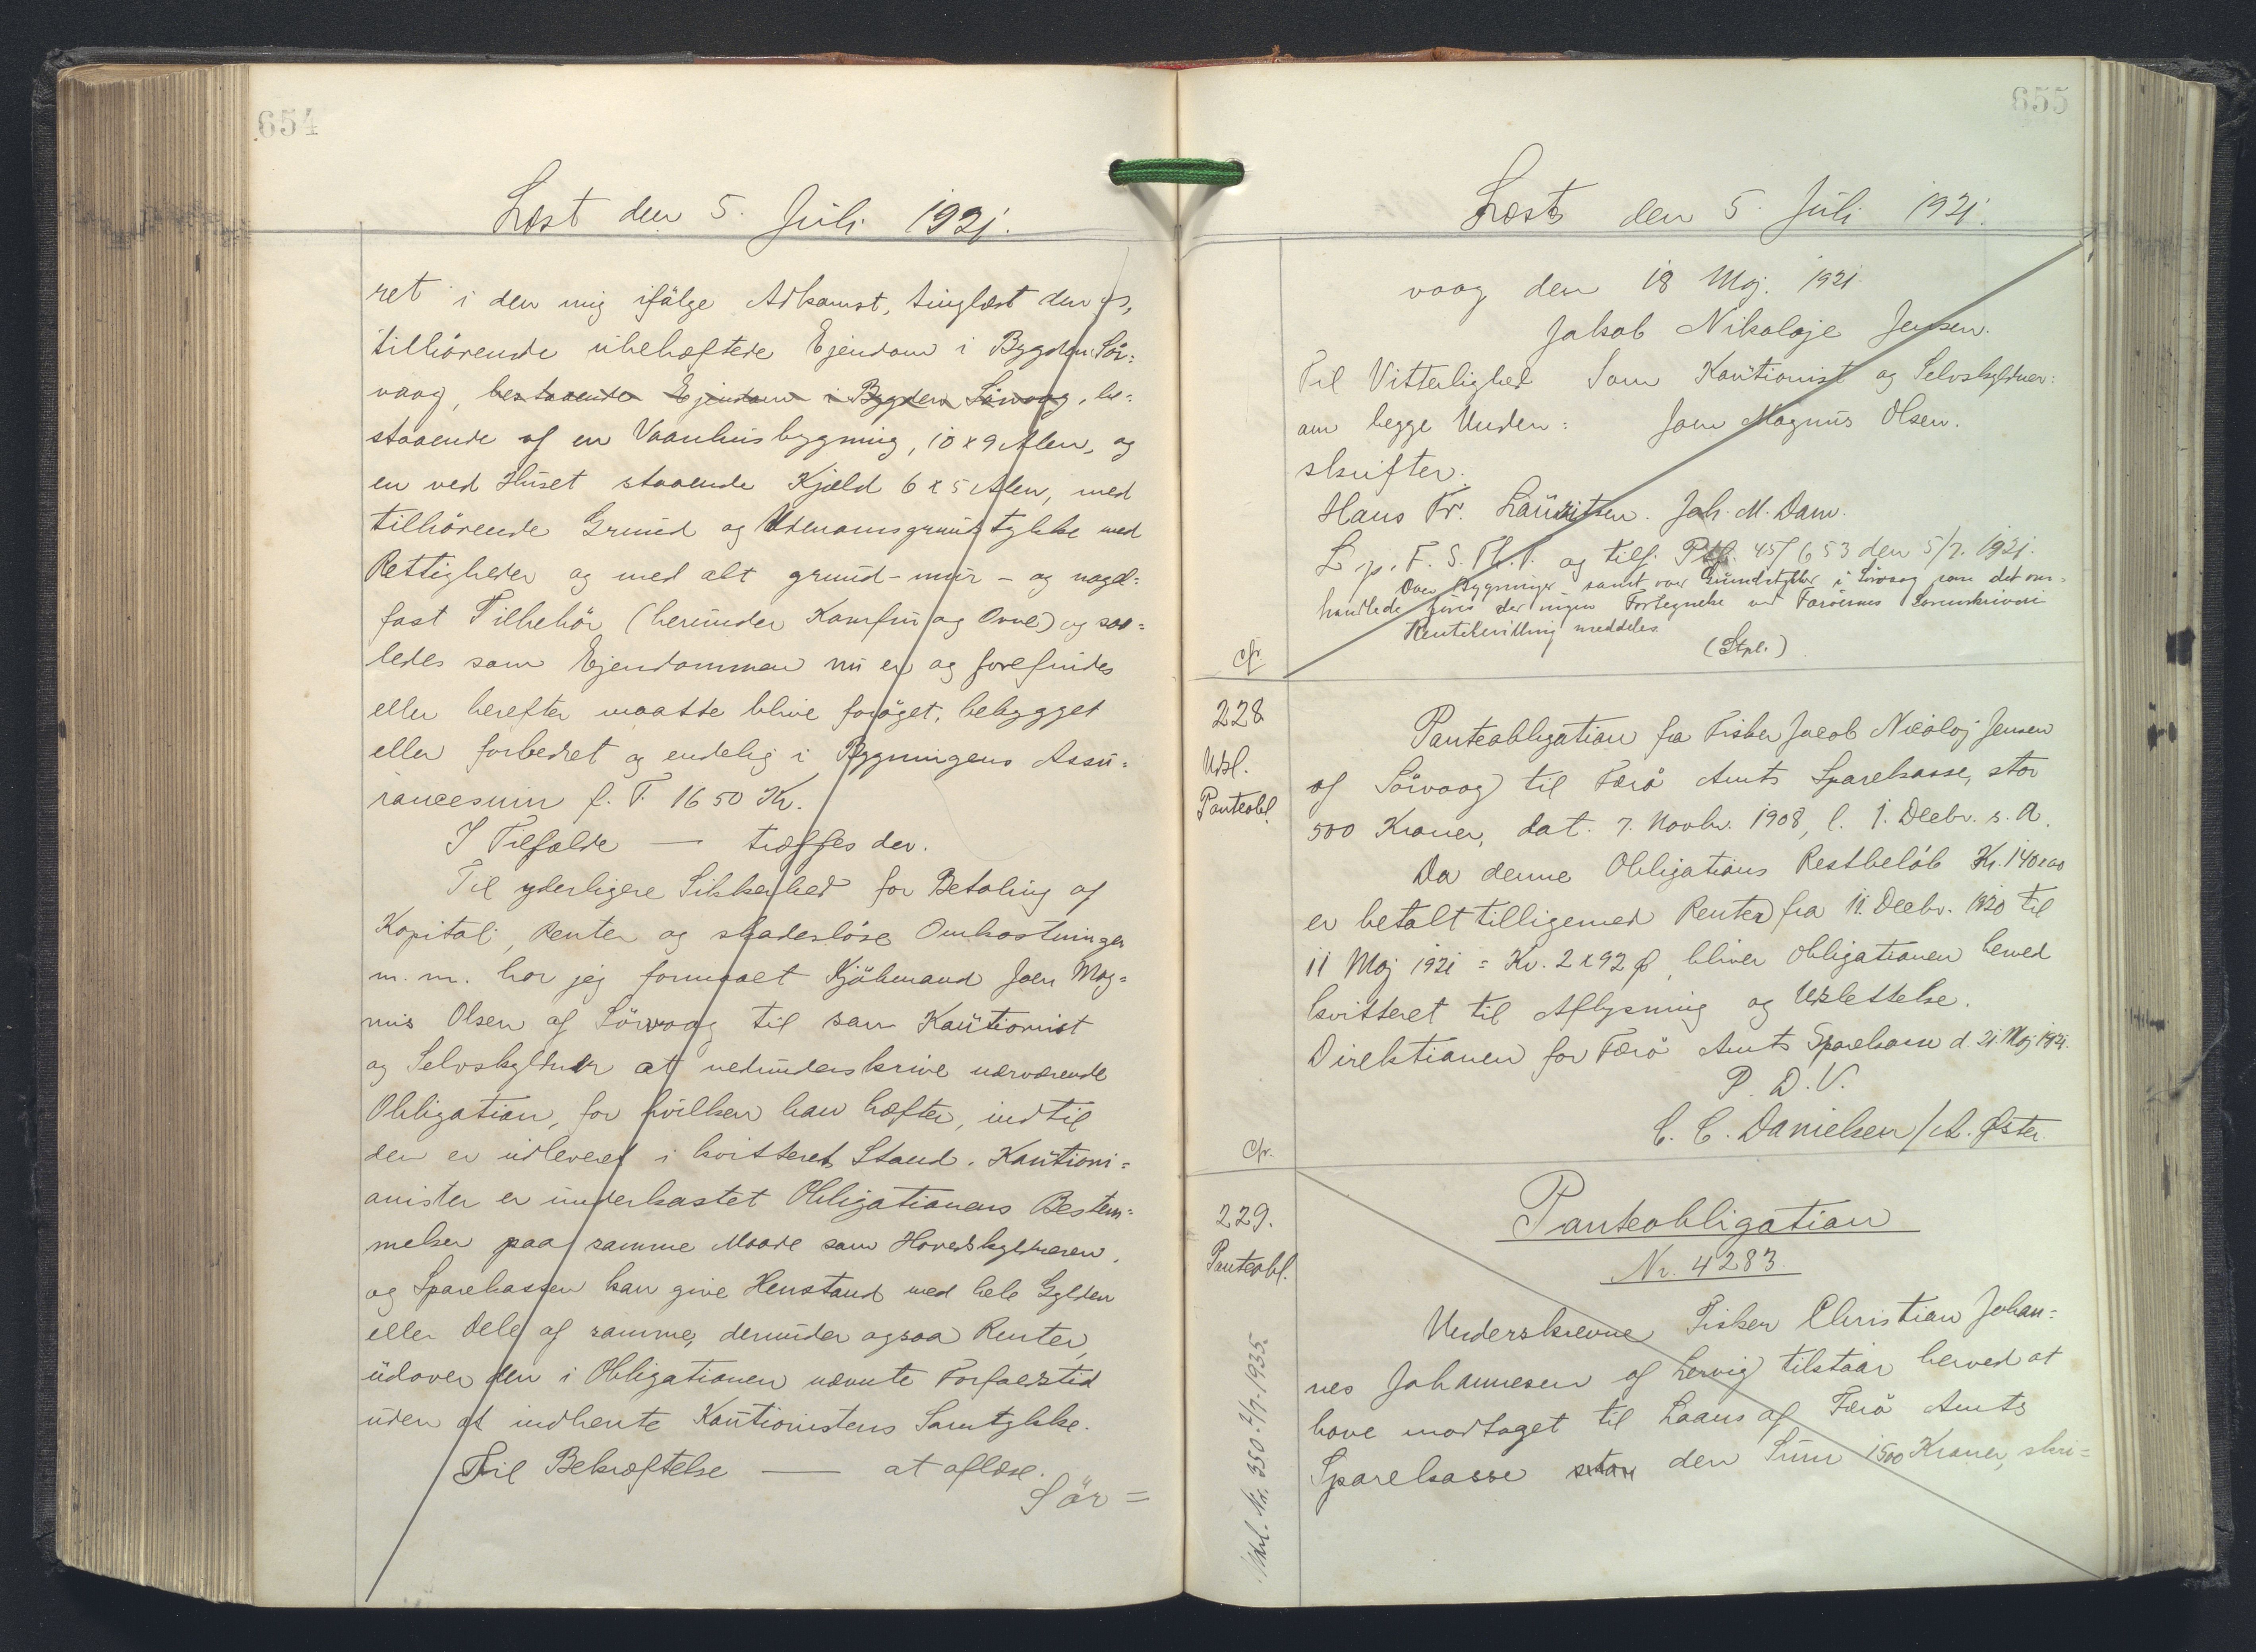 654
Læst den 5. Juli 1921.
ret i den mig ifølge Adkomst, tinglæst den ds,
tilhörende ubehæftede Ejendom i Bygden Sör=
vaag, bestaaende Ejendom i Bygden Sörvaag, be=
staaende af en Vaanhusbygning, 10 x 9 Alen, og
en ved Huset staaende Kjæld 6 x 5 Alen, med
tilhörende Grund og Udenomsgrundstykke med
Rettigheder og med alt grund- mur- og nagel=
fast Tilbehör (herunder Komfur og Ovne) og saa=
ledes som Ejendommen nu er og forefindes
eller herefter maatte blive forøget, bebygget
eller forbedret og endelig i Bygningens Assu=
rancesum f. T. 1650 Kr.
I Tilfælde — træffes der.
Til yderligere Sikkerhed for Betaling af
Kapital, Renter og skadesløse Omkostninger
m. m. har jeg formaaet Kjöbmand Joen Mag=
nus Olsen af Sörvaag til som Kautionist
og Selvskyldner at medunderskrive nærværende
Obligation, for hvilken han hæfter, indtil
den er udleveret i kvitteret Stand. Kautioni=
onister er underkastet Obligationens Bestem=
melser paa samme Maade som Hovedskyldneren,
og Sparekassen kan give Henstand med hele Gylden
eller Dele af samme, derunder ogsaa Renter,
udover den i Obligationen nævnte Forfaldstid
uden at indhente Kautionistens Samtykke.
Til Bekræftelse — at aflæse.
Sör=
655
Læst den 5. Juli 1921.
vaag den 18 Maj. 1921
Jakob Nikolaje Jensen.
Til Vitterlighed Som Kautionist og Selvskyldner:
om begge Under: Joen Magnus Olsen.
skrifter.
Hans Fr. Lauritsen. Joh. M. Dam.
L. p. F. S. Th. T. og tilf. Ptf. 45f 653 den 5/7. 1921.
Over Bygninger samt over Grundstykker i Sörvaag som det om=
handlede føres der ingen Fortegnelse ved Færøernes Sorenskriveri
Rentekvittering meddeles.
(Stpl.)
cfr
228
Udsl.
Panteobl.
Panteobligation fra Fisker Jacob Nicolaj Jensen
af Sörvaag til Færö Amts Sparekasse, stor
500 Kroner, dat. 7. Novbr. 1908, l. 1. Decbr. s. A.
Da denne Obligations Restbeløb Kr. 140x00
er betalt tilligemed Renter fra 11. Decbr. 1920 til
11 Maj 1921 = Kr. 2x92 ø, bliver Obligationen herved
kvitteret til Aflysning og Udslettelse.
Direktionen for Færö Amts Sparekasse d. 21 Maj 1921.
P. D. V.
C. C. Danielsen / A. Øster.
Cfr.
229.
Panteobl.
Panteobligation
Nr. 4283.
Underskrevne Fisker Christian Johan=
nes Johannesen af Lervig tilstaar herved at
have modtaget til Laans af Færö Amts
Sparekasse stor den Sum 1500 Kroner, skri=
Udsl. Nr. 350-2/7-1935.